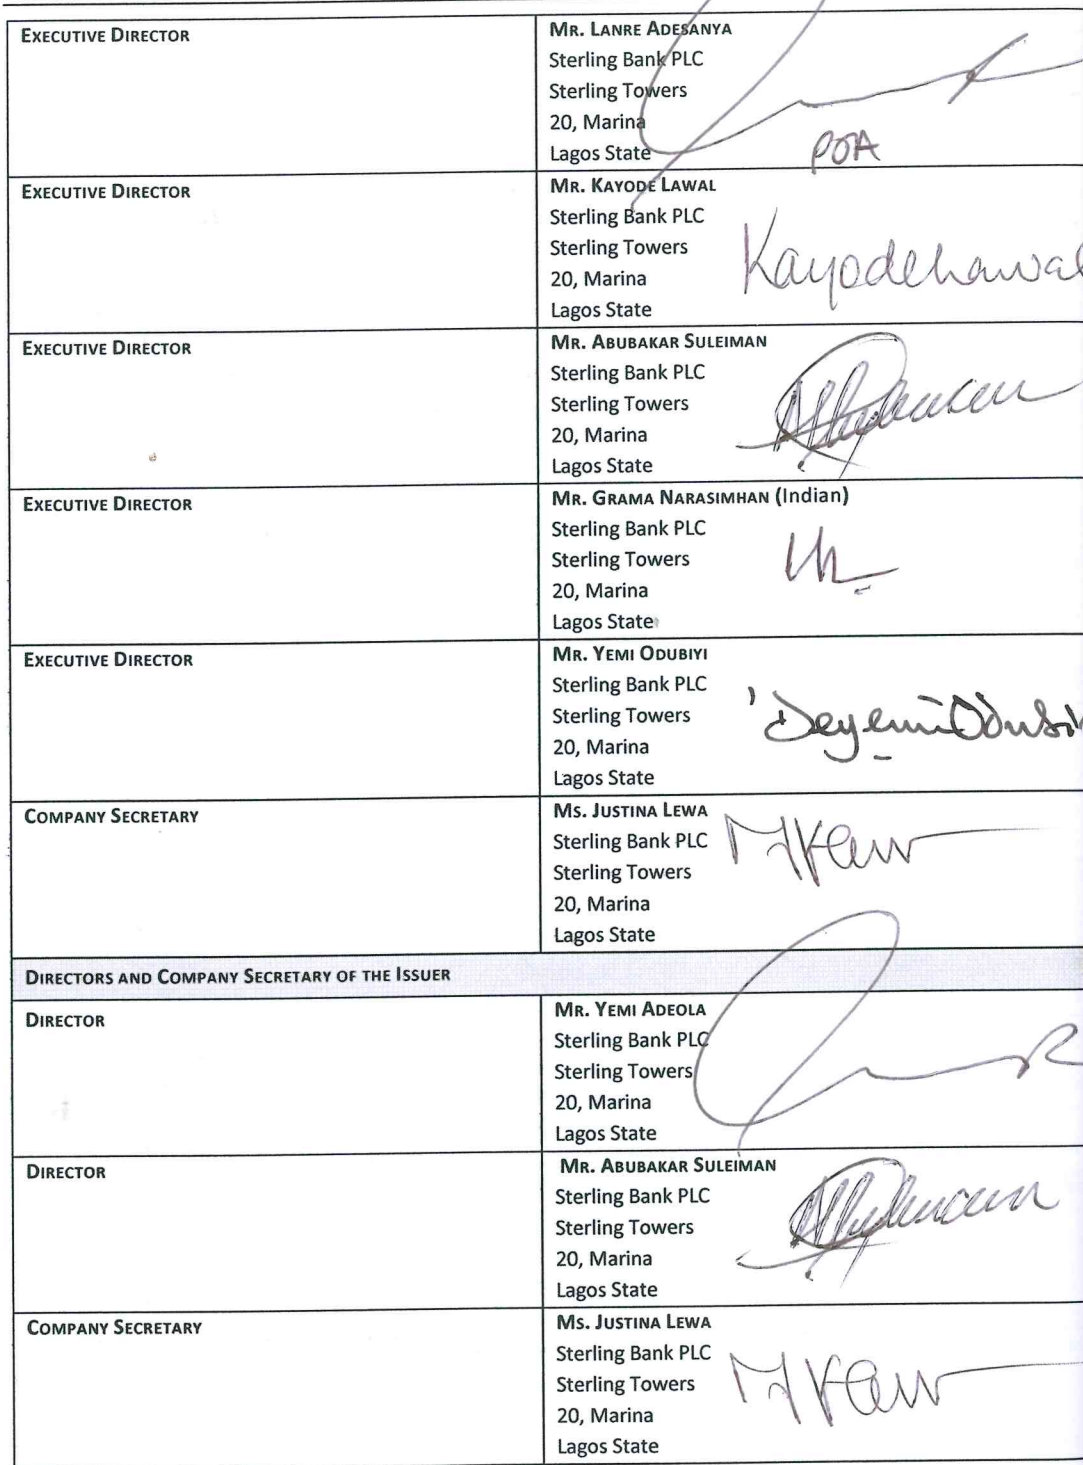 EXECUTIVE DIRECTOR
MR. LANRE ADESANYA
Sterling Bank PLC
Sterling Towers
20, Marina
Lagos State
POA
EXECUTIVE DIRECTOR
MR. KAYODE LAWAL
Sterling Bank PLC
Sterling Towers
20, Marina
Lagos State
Kayode Lawal
EXECUTIVE DIRECTOR
MR. ABUBAKAR SULEIMAN
Sterling Bank PLC
Sterling Towers
20, Marina
Lagos State
EXECUTIVE DIRECTOR
MR. GRAMA NARASIMHAN (Indian)
Sterling Bank PLC
Sterling Towers
20, Marina
Lagos State
EXECUTIVE DIRECTOR
MR. YEMI ODUBIYI
Sterling Bank PLC
Sterling Towers
20, Marina
Lagos State
COMPANY SECRETARY
MS. JUSTINA LEWA
Sterling Bank PLC
Sterling Towers
20, Marina
Lagos State
DIRECTORS AND COMPANY SECRETARY OF THE ISSUER
DIRECTOR
MR. YEMI ADEOLA
Sterling Bank PLC
Sterling Towers
20, Marina
Lagos State
DIRECTOR
MR. ABUBAKAR SULEIMAN
Sterling Bank PLC
Sterling Towers
20, Marina
Lagos State
COMPANY SECRETARY
MS. JUSTINA LEWA
Sterling Bank PLC
Sterling Towers
20, Marina
Lagos State